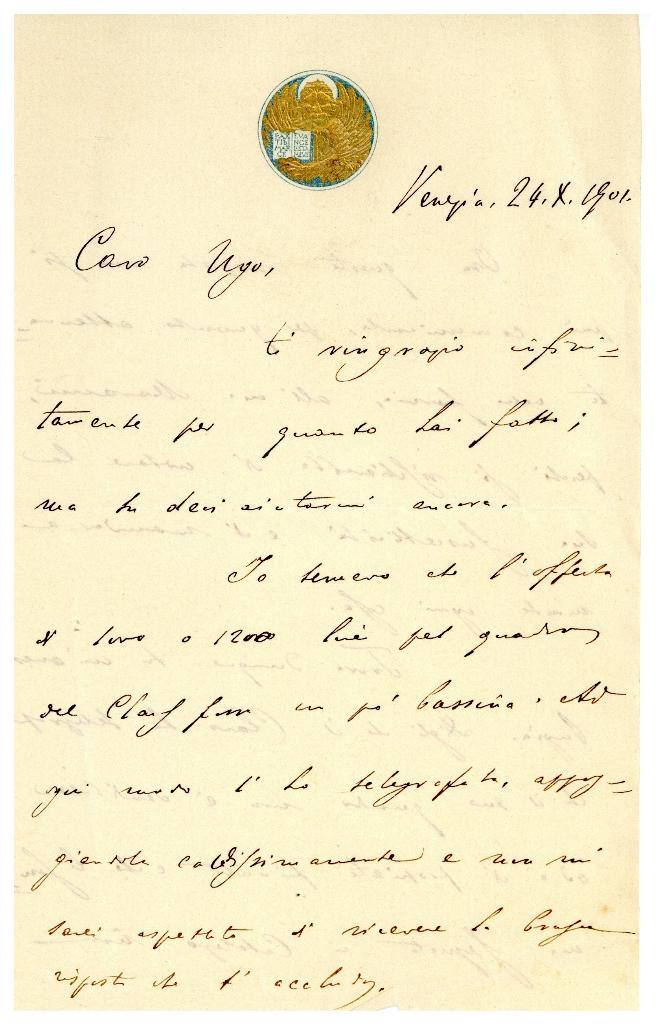 PAX TIBI MARCE EVANGELISTA MEUS
Venezia, 24. X. 1901.
Caro Ugo,
ti ringrazio infini=
tamente per quanto hai fatto;
ma tu devi aiutarmi ancora.
Io temevo che l'offerta
di 1000 o 1200 lire pel quadro
del Clays fosse un po' bassina. Ad
ogni modo l'ho telegrafata, appog=
giandola caldissimamente e non mi
sarei aspettato di ricevere la
risposta che t'accludo.